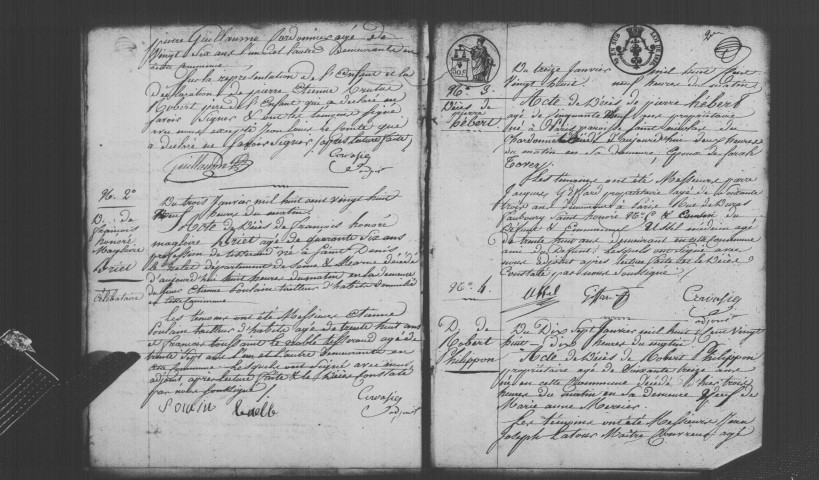 pierre Guillaume Cordonnier agé de
Vingt Six ans l'un et l'autre Demeurants en
cette commune
Sur la representation de l'Enfant et la
déclaration de pierre Etienne
Robert pere de l'Enfant qui a déclaré ne
savoir Signer & ont les temoins Signé
avec nous excepté Jean Louis le Comte qui
a déclaré ne savoir Signer, apres lecture faite
Guillaume
Cervoisy
adjoint
No. 2
D. de
François
honoré
Magloire
Priet
Célibataire
Du trois Janvier mil huit cent vingt huit
Neuf heures du matin
Acte de Décès de François honoré
magloire priet agé de quarante Six ans
profession de né à Saint Denis
département de Seine & Marne décédé
d'aujourd'hui huit heures du matin en la demeure
du Sieur Etienne Poulain tailleur d'habits domicilié
en cette commune
Les temoins ont été Messieurs Etienne
Poulain tailleur d'habits agé de trente huit ans
et François toussaint tisserand agé de
trente Sept ans l'un et l'autre demeurants en
cette Commune Lesquels ont Signé avec nous
adjoint apres lecture faite & le Décès Constaté
par nous Soussigné
Poulin
Cervoisy
adjoint
No. 3.
Décès de
pierre
hébert
Du treize Janvier mil huit Cent
Vingt huit neuf heures du matin
Acte de Décès de pierre hébert
agé de Cinquante Neuf ans propriétaire
né à Paris paroisse Saint Nicolas du
Chardonnet décédé d'aujourd'hui deux heures
du matin en sa demeure, Epoux de Sarah
Les temoins ont été Messieurs pierre
Jacques propriétaire agé de Soixante
trois ans demeurant à Paris Rue de Duras
faubourg Saint honoré No. 5 & Cousin du
Défunt & medecin agé
de trente huit ans demeurant en cette Commune
ami du Defunt Lesquels ont Signé avec
nous adjoint apres lecture faite & le Décès
Constaté par nous Soussigné
Cervoisy
adjoint
No. 4.
D. de
Robert
Philippon
Du Dix Sept Janvier mil huit Cent Vingt
huit dix heures du matin
Acte de Décès de Robert Philippon
propriétaire agé de Soixante treize ans
né en cette Commune décédé d'hier trois
heures du matin en sa Demeure Veuf de
Marie anne Mercier
Les temoins ont été Messieurs Jean
Joseph Latour Maître agé